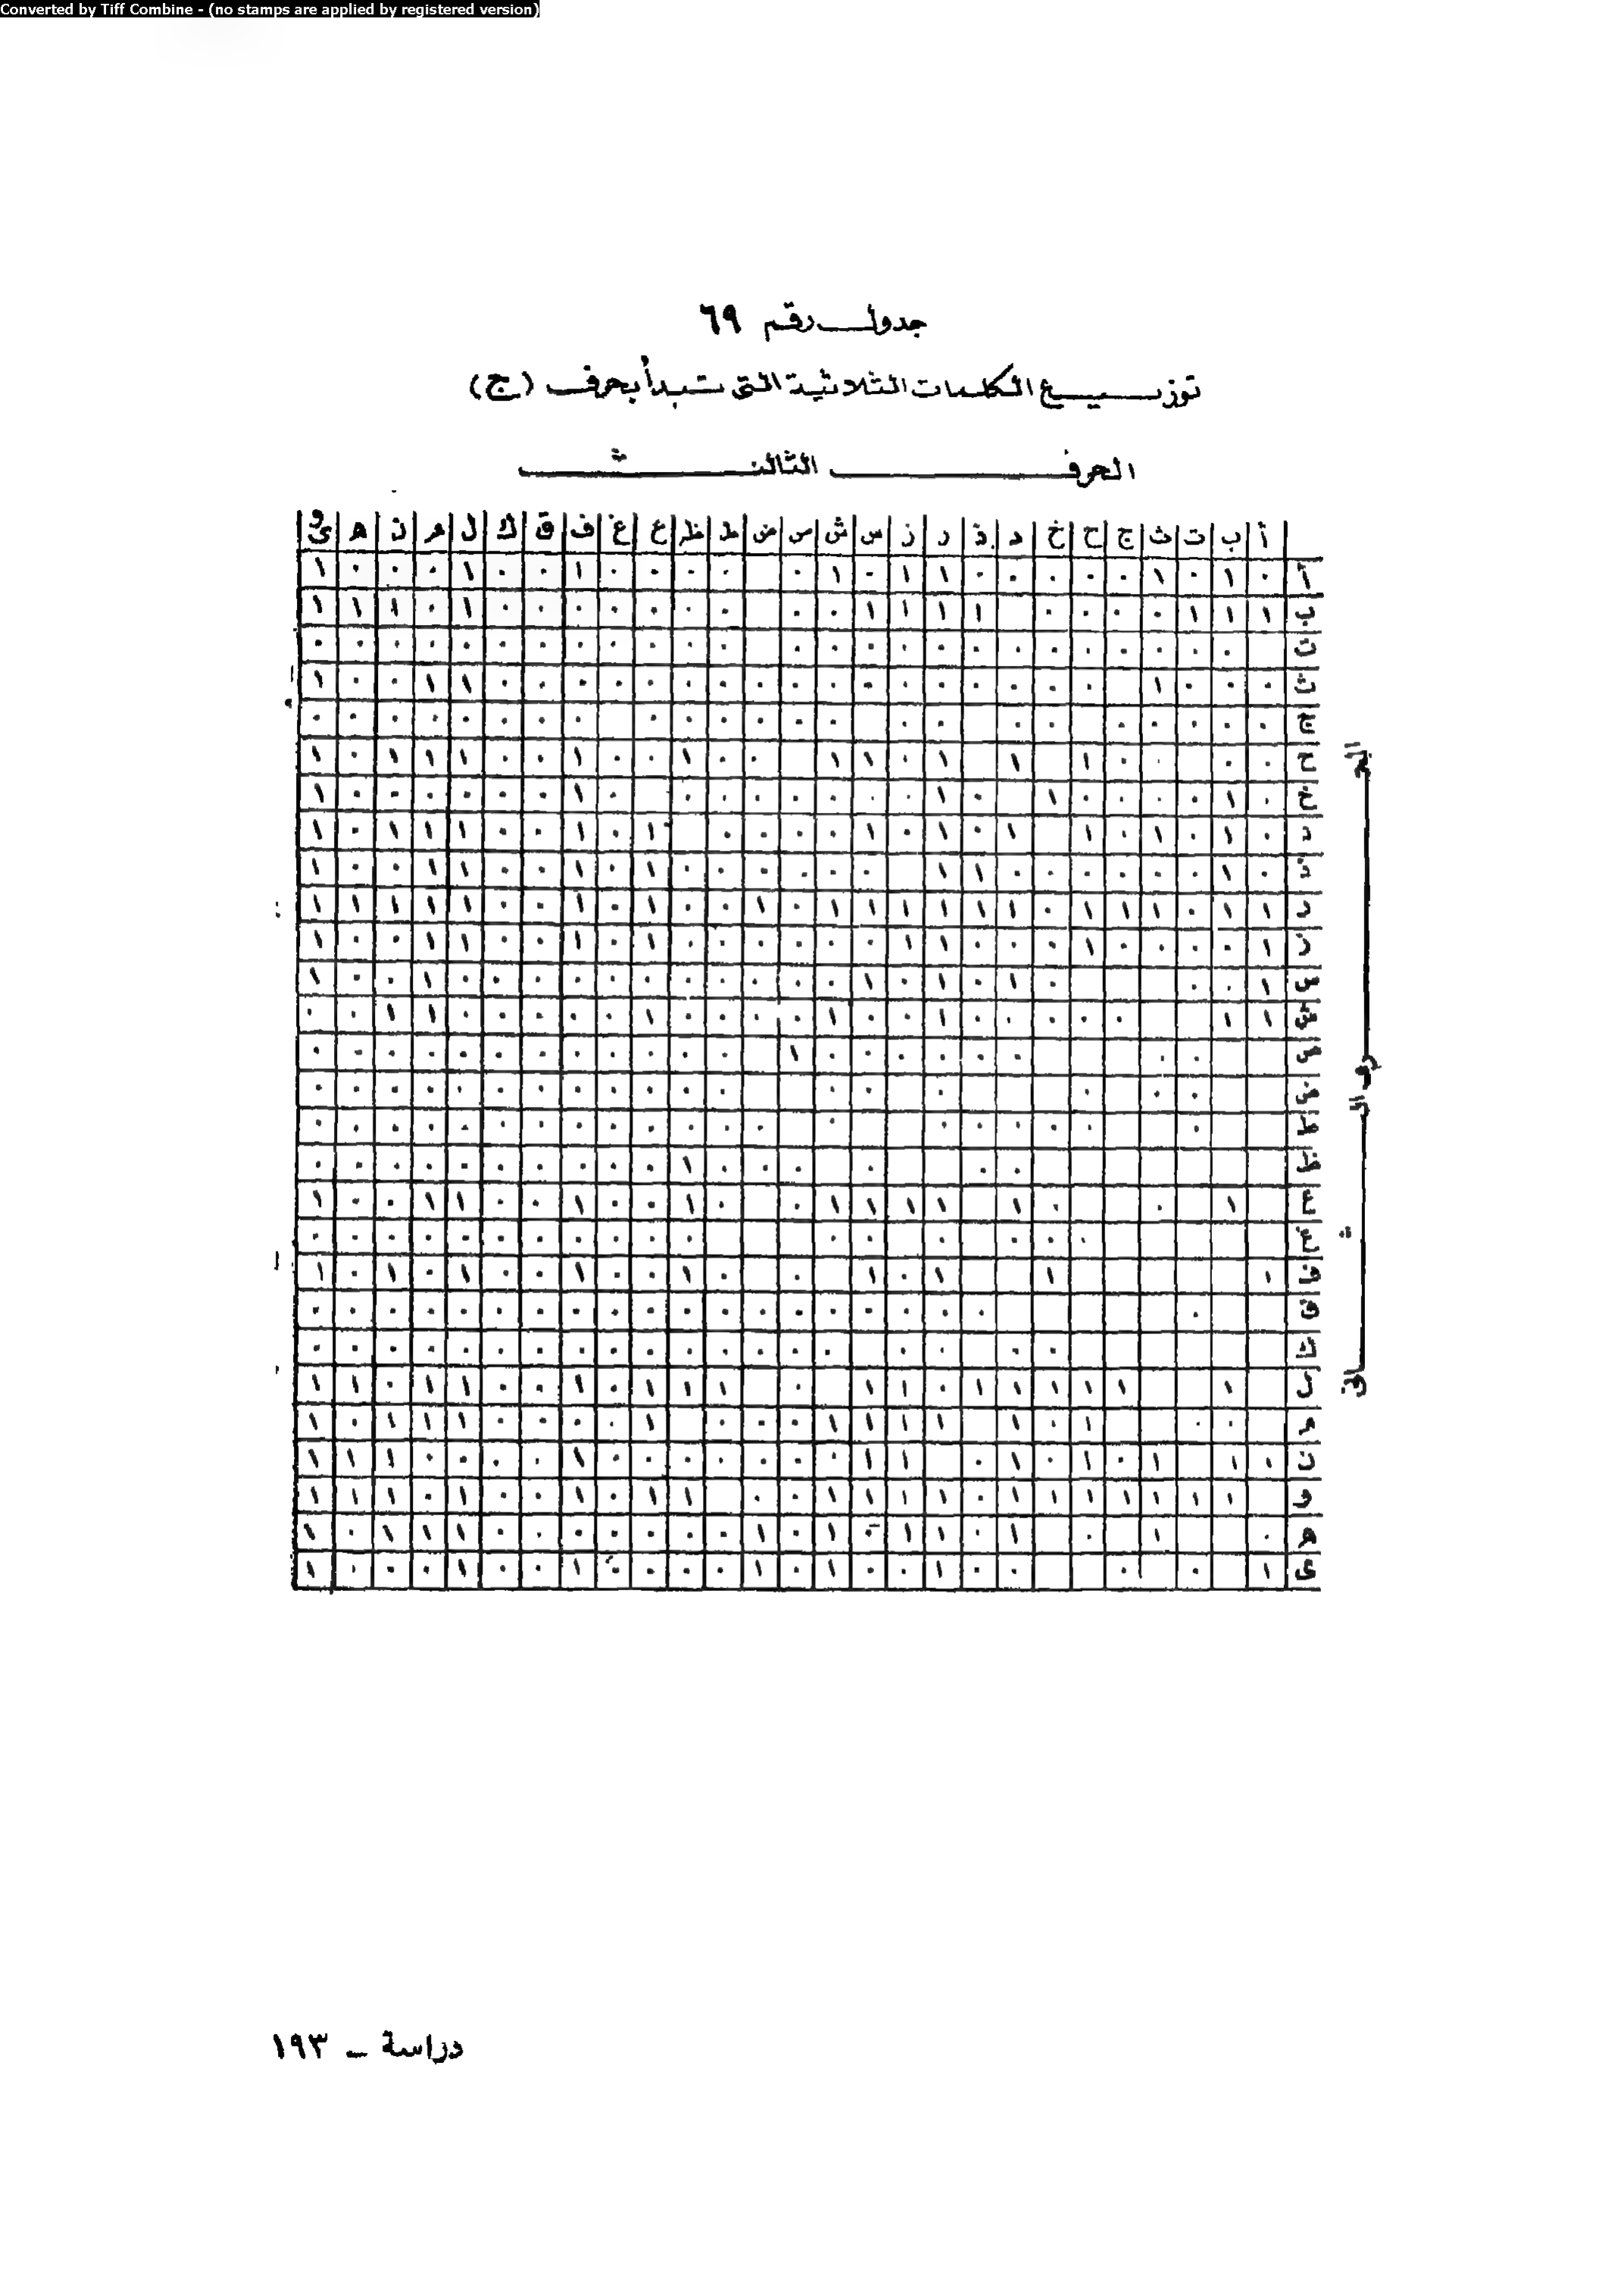 جدول رقم ٦٩
توزيع الكلمات الثلاثية التى تبدأ بحرف (ج)
الحرف الثالث
أ ب ت ث ج ح خ د ذ ر ز س ش ص ض ط ظ ع غ ف ق ك ل م ن ه و ى
أ ٠ ١ ٠ ١ ٠ ٠ ٠ ٠ ٠ ١ ١ ٠ ١ ٠ ٠ ٠ ٠ ٠ ١ ٠ ٠ ١ ٠ ٠ ٠ ١
ب ١ ١ ١ ٠ ٠ ٠ ٠ ١ ١ ١ ١ ٠ ٠ ٠ ٠ ٠ ٠ ٠ ٠ ٠ ١ ٠ ١ ١ ١
ت ٠ ٠ ٠ ٠ ٠ ٠ ٠ ٠ ٠ ٠ ٠ ٠ ٠ ٠ ٠ ٠ ٠ ٠ ٠ ٠ ٠ ٠ ٠ ٠ ٠
ث ٠ ٠ ٠ ١ ٠ ٠ ٠ ٠ ٠ ٠ ٠ ٠ ٠ ٠ ٠ ٠ ٠ ٠ ٠ ٠ ٠ ١ ١ ٠ ٠ ١
ج ٠ ٠ ٠ ٠ ٠ ٠ ٠ ٠ ٠ ٠ ٠ ٠ ٠ ٠ ٠ ٠ ٠ ٠ ٠ ٠ ٠ ٠ ٠ ٠
ح ٠ ٠ ٠ ٠ ١ ١ ١ ٠ ١ ١ ٠ ٠ ١ ٠ ٠ ١ ٠ ٠ ١ ١ ١ ٠ ١
خ ٠ ١ ٠ ٠ ٠ ٠ ١ ٠ ١ ٠ ٠ ٠ ٠ ٠ ٠ ٠ ٠ ١ ٠ ٠ ٠ ٠ ٠ ٠ ١
د ٠ ١ ٠ ١ ٠ ١ ١ ٠ ١ ٠ ١ ٠ ٠ ٠ ٠ ١ ٠ ١ ٠ ٠ ١ ١ ١ ٠ ١
ذ ٠ ١ ٠ ٠ ٠ ٠ ٠ ٠ ١ ١ ٠ ٠ ٠ ٠ ٠ ٠ ١ ٠ ١ ٠ ٠ ١ ١ ٠ ٠ ١
ر ١ ١ ٠ ١ ١ ١ ٠ ١ ١ ١ ١ ١ ١ ٠ ١ ٠ ٠ ١ ٠ ١ ٠ ٠ ١ ١ ١ ١ ١
ز ١ ٠ ٠ ٠ ٠ ١ ٠ ٠ ٠ ١ ١ ٠ ٠ ٠ ٠ ٠ ٠ ١ ٠ ١ ٠ ٠ ١ ١ ٠ ٠ ١
س ١ ٠ ٠ ٠ ١ ٠ ١ ٠ ١ ٠ ٠ ٠ ٠ ٠ ٠ ٠ ٠ ٠ ٠ ٠ ١ ٠ ٠ ١
ش ١ ١ ٠ ٠ ٠ ٠ ٠ ١ ٠ ٠ ١ ٠ ٠ ٠ ٠ ١ ٠ ٠ ٠ ٠ ٠ ١ ١ ٠ ٠
ص ٠ ٠ ٠ ٠ ٠ ٠ ٠ ٠ ١ ٠ ٠ ٠ ٠ ٠ ٠ ٠ ٠ ٠ ٠ ٠ ٠
ض ٠ ٠ ٠ ٠ ٠ ٠ ٠ ٠ ٠ ٠ ٠ ٠ ٠ ٠ ٠ ٠ ٠ ٠
ط ٠ ٠ ٠ ٠ ٠ ٠ ٠ ٠ ٠ ٠ ٠ ٠ ٠ ٠ ٠ ٠ ٠ ٠ ٠ ٠
ظ ٠ ٠ ٠ ٠ ٠ ٠ ١ ٠ ٠ ٠ ٠ ٠ ٠ ٠ ٠ ٠ ٠
ع ١ ٠ ٠ ١ ١ ١ ١ ١ ٠ ٠ ١ ٠ ٠ ١ ٠ ٠ ١ ١ ٠ ٠ ١
غ ٠ ٠ ٠ ٠ ٠ ٠ ٠ ٠ ٠ ٠ ٠ ٠ ٠ ٠ ٠ ٠ ٠
ف ١ ١ ١ ٠ ١ ٠ ٠ ١ ٠ ٠ ١ ٠ ٠ ١ ٠ ١ ٠ ١
ق ٠ ٠ ٠ ٠ ٠ ٠ ٠ ٠ ٠ ٠ ٠ ٠ ٠ ٠ ٠ ٠ ٠ ٠ ٠ ٠
ك ٠ ٠ ٠ ٠ ٠ ٠ ٠ ٠ ٠ ٠ ٠ ٠ ٠ ٠ ٠ ٠ ٠ ٠ ٠
ل ١ ١ ١ ١ ١ ١ ٠ ١ ١ ٠ ١ ١ ١ ٠ ١ ٠ ٠ ١ ١ ٠ ١ ١
م ٠ ٠ ١ ٠ ١ ١ ١ ١ ١ ٠ ٠ ٠ ١ ٠ ٠ ٠ ٠ ١ ١ ١ ٠ ١
ن ١ ١ ١ ٠ ١ ٠ ١ ٠ ١ ١ ٠ ٠ ٠ ٠ ٠ ٠ ٠ ١ ٠ ٠ ٠ ٠ ١ ١ ١
و ١ ١ ١ ١ ١ ١ ١ ٠ ١ ١ ١ ١ ٠ ٠ ١ ١ ٠ ١ ٠ ٠ ١ ٠ ١ ١ ١
ه ٠ ١ ٠ ١ ٠ ١ ١ ٠ ١ ٠ ١ ٠ ٠ ٠ ٠ ٠ ٠ ٠ ١ ١ ١ ٠ ١
ى ١ ٠ ٠ ٠ ٠ ١ ٠ ٠ ١ ٠ ١ ٠ ٠ ٠ ٠ ١ ٠ ٠ ١ ٠ ٠ ٠ ١
الحرف الثانى
دراسة ـ ١٩٣
Converted by Tiff Combine - (no stamps are applied by registered version)